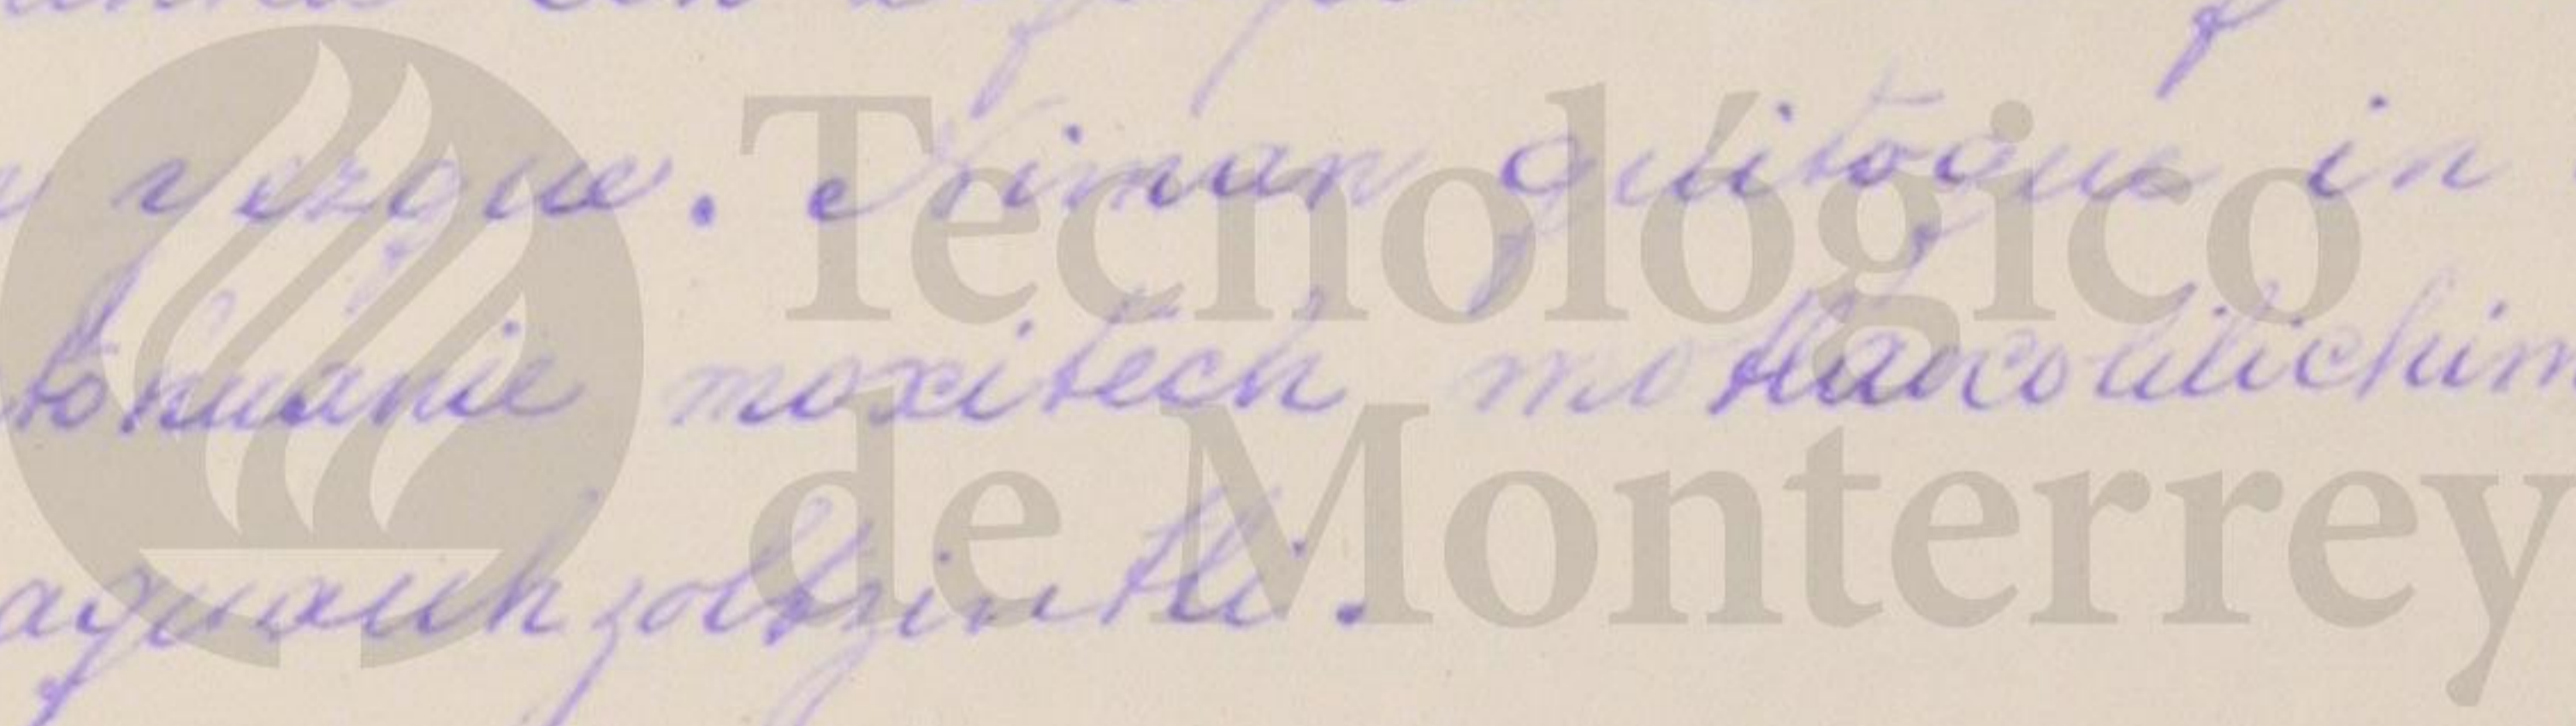 yezque. Niman quitoque in
tohuanie moxitech motlancolilichim
aquauhzoltzintli.
Tecnológico
de Monterrey